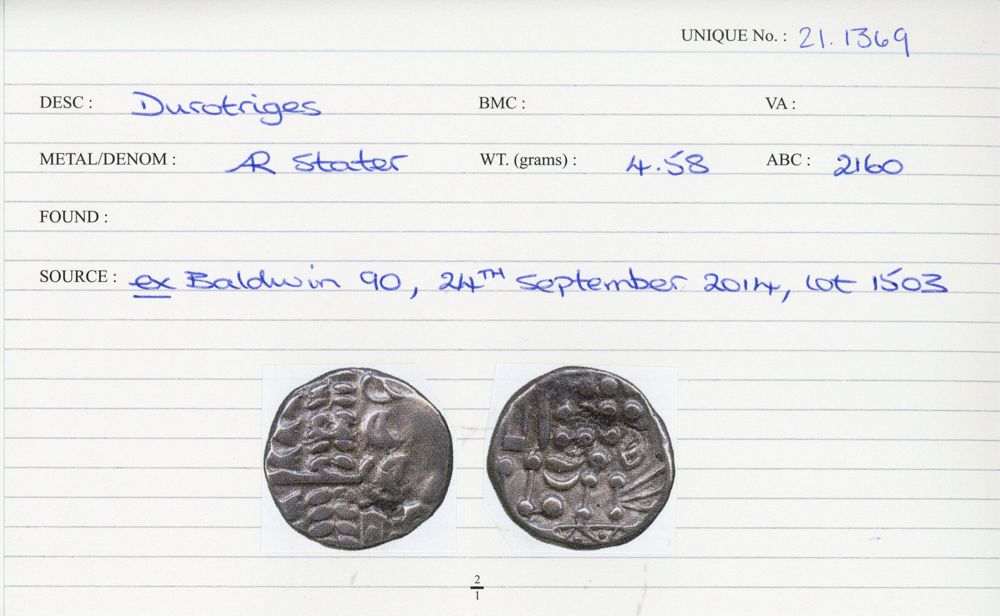 UNIQUE No. : 21.1369
DESC : Durotriges BMC : VA :
METAL/DENOM : AR Stater WT. (grams) : 4.58 ABC : 2160
FOUND :
SOURCE : ex Baldwin 90, 24TH September 2014, lot 1503
2
1